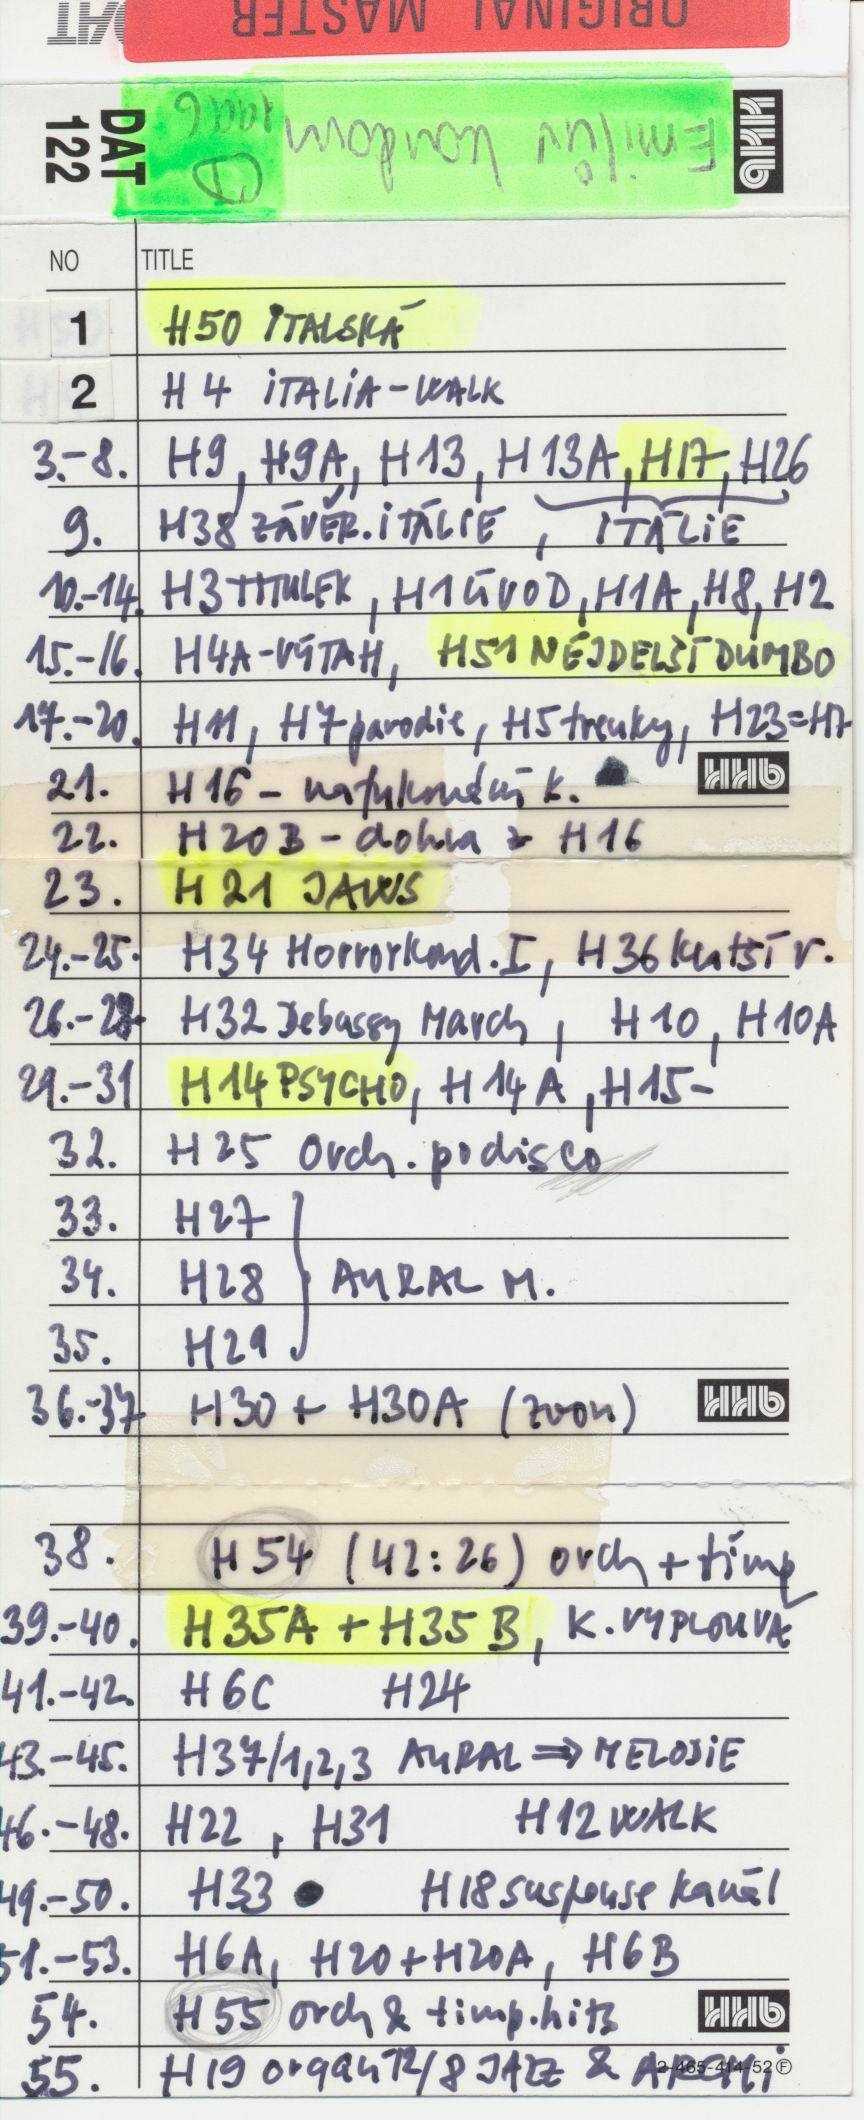 DAT
ORIGINAL MASTER
DAT
122
1996
HHB
NO TITLE
1 H50 ITALSKÁ
2 H4 ITALIA-WALK
3.-8. H9, H9A, H13, H13A, H17, H26
9. H38 ZÁVĚR. ITÁLIE, ITÁLIE
10.-14. H3 TITULEK, H1 ÚVOD, H1A, H8, H2
15.-16. H4A-VÝTAH, H51 NEJDELŠÍ DUMBO
17.-20. H11, H7 parodie, H5 trenky, H23=H7
HHB
21. H16 - k.
22. H20B - dohra z H16
23. H21 JAWS
24.-25. H34 Horrorkond. I, H36 kratší v.
26.-28. H32 Debussy March, H10, H10A
29.-31 H14 PSYCHO, H14A, H15-
32. H25 Orch. po disco
33. H27
34. H28 AURAL M.
35. H29
36.-37 H30 + H30A (zvon)
HHB
38. H54 (42:26) orch + timp
39.-40. H35A + H35B, K. VYPLOUVÁ
41.-42. H6C H24
43.-45. H37/1,2,3 AURAL ⇒ MELODIE
46.-48. H22, H31 H12 WALK
49.-50. H33 H18 suspense kanál
51.-53. H6A, H20+H20A, H6B
54. H55 orch & timp. hits
HHB
55. H19 organ 12/8 JAZZ &
2-465-414-52 Ⓕ